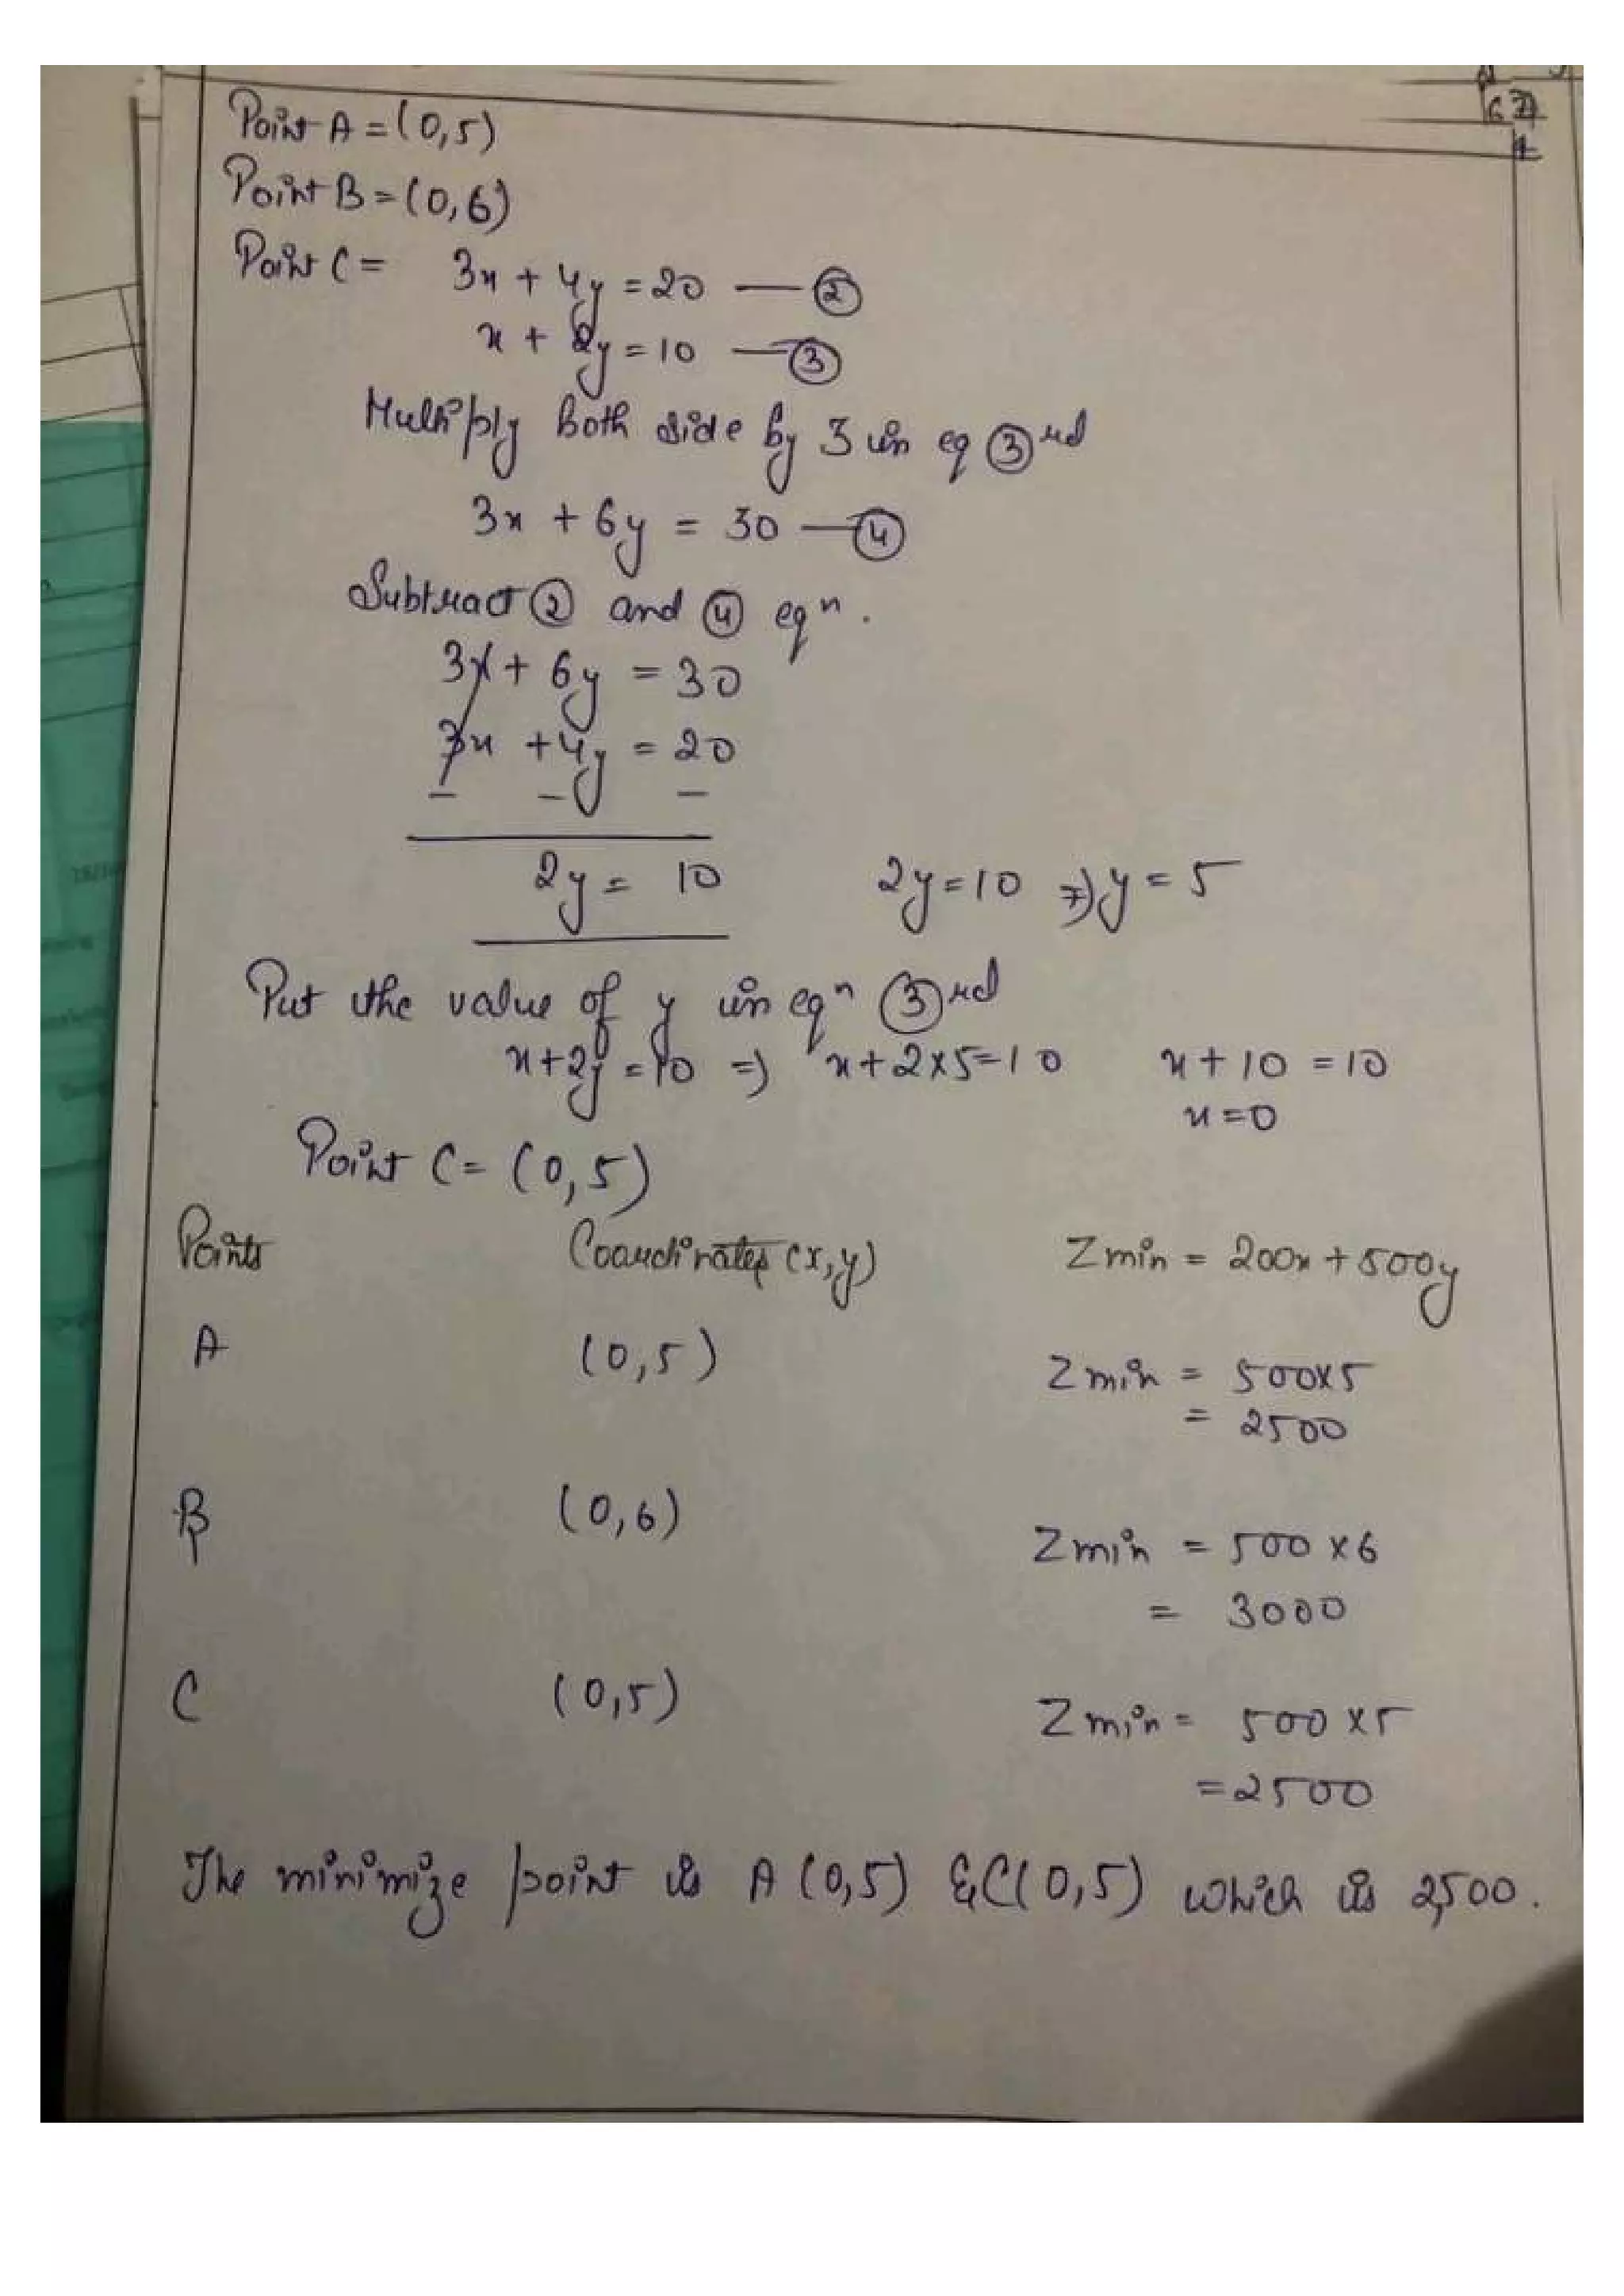 Point A = (0,5)
Point B = (0,6)
Point C = 3x + 4y = 20 — ②
x + 2y = 10 — ③
Multiply both side by 3 in eq ③rd
3x + 6y = 30 — ④
Subtract ② and ④ eqⁿ.
3x + 6y = 30
3x + 4y = 20
- - -
2y = 10 2y = 10 ⇒ y = 5
Put the value of y in eqⁿ ③rd
x + 2y = 10 ⇒ x + 2×5 = 10 x + 10 = 10
x = 0
Point C = (0,5)
Points Coordinates (x,y) Zmin = 200x + 500y
A (0,5) Zmin = 500×5
= 2500
B (0,6) Zmin = 500×6
= 3000
C (0,5) Zmin = 500×5
= 2500
The minimize point is A (0,5) & C(0,5) which is 2,500.